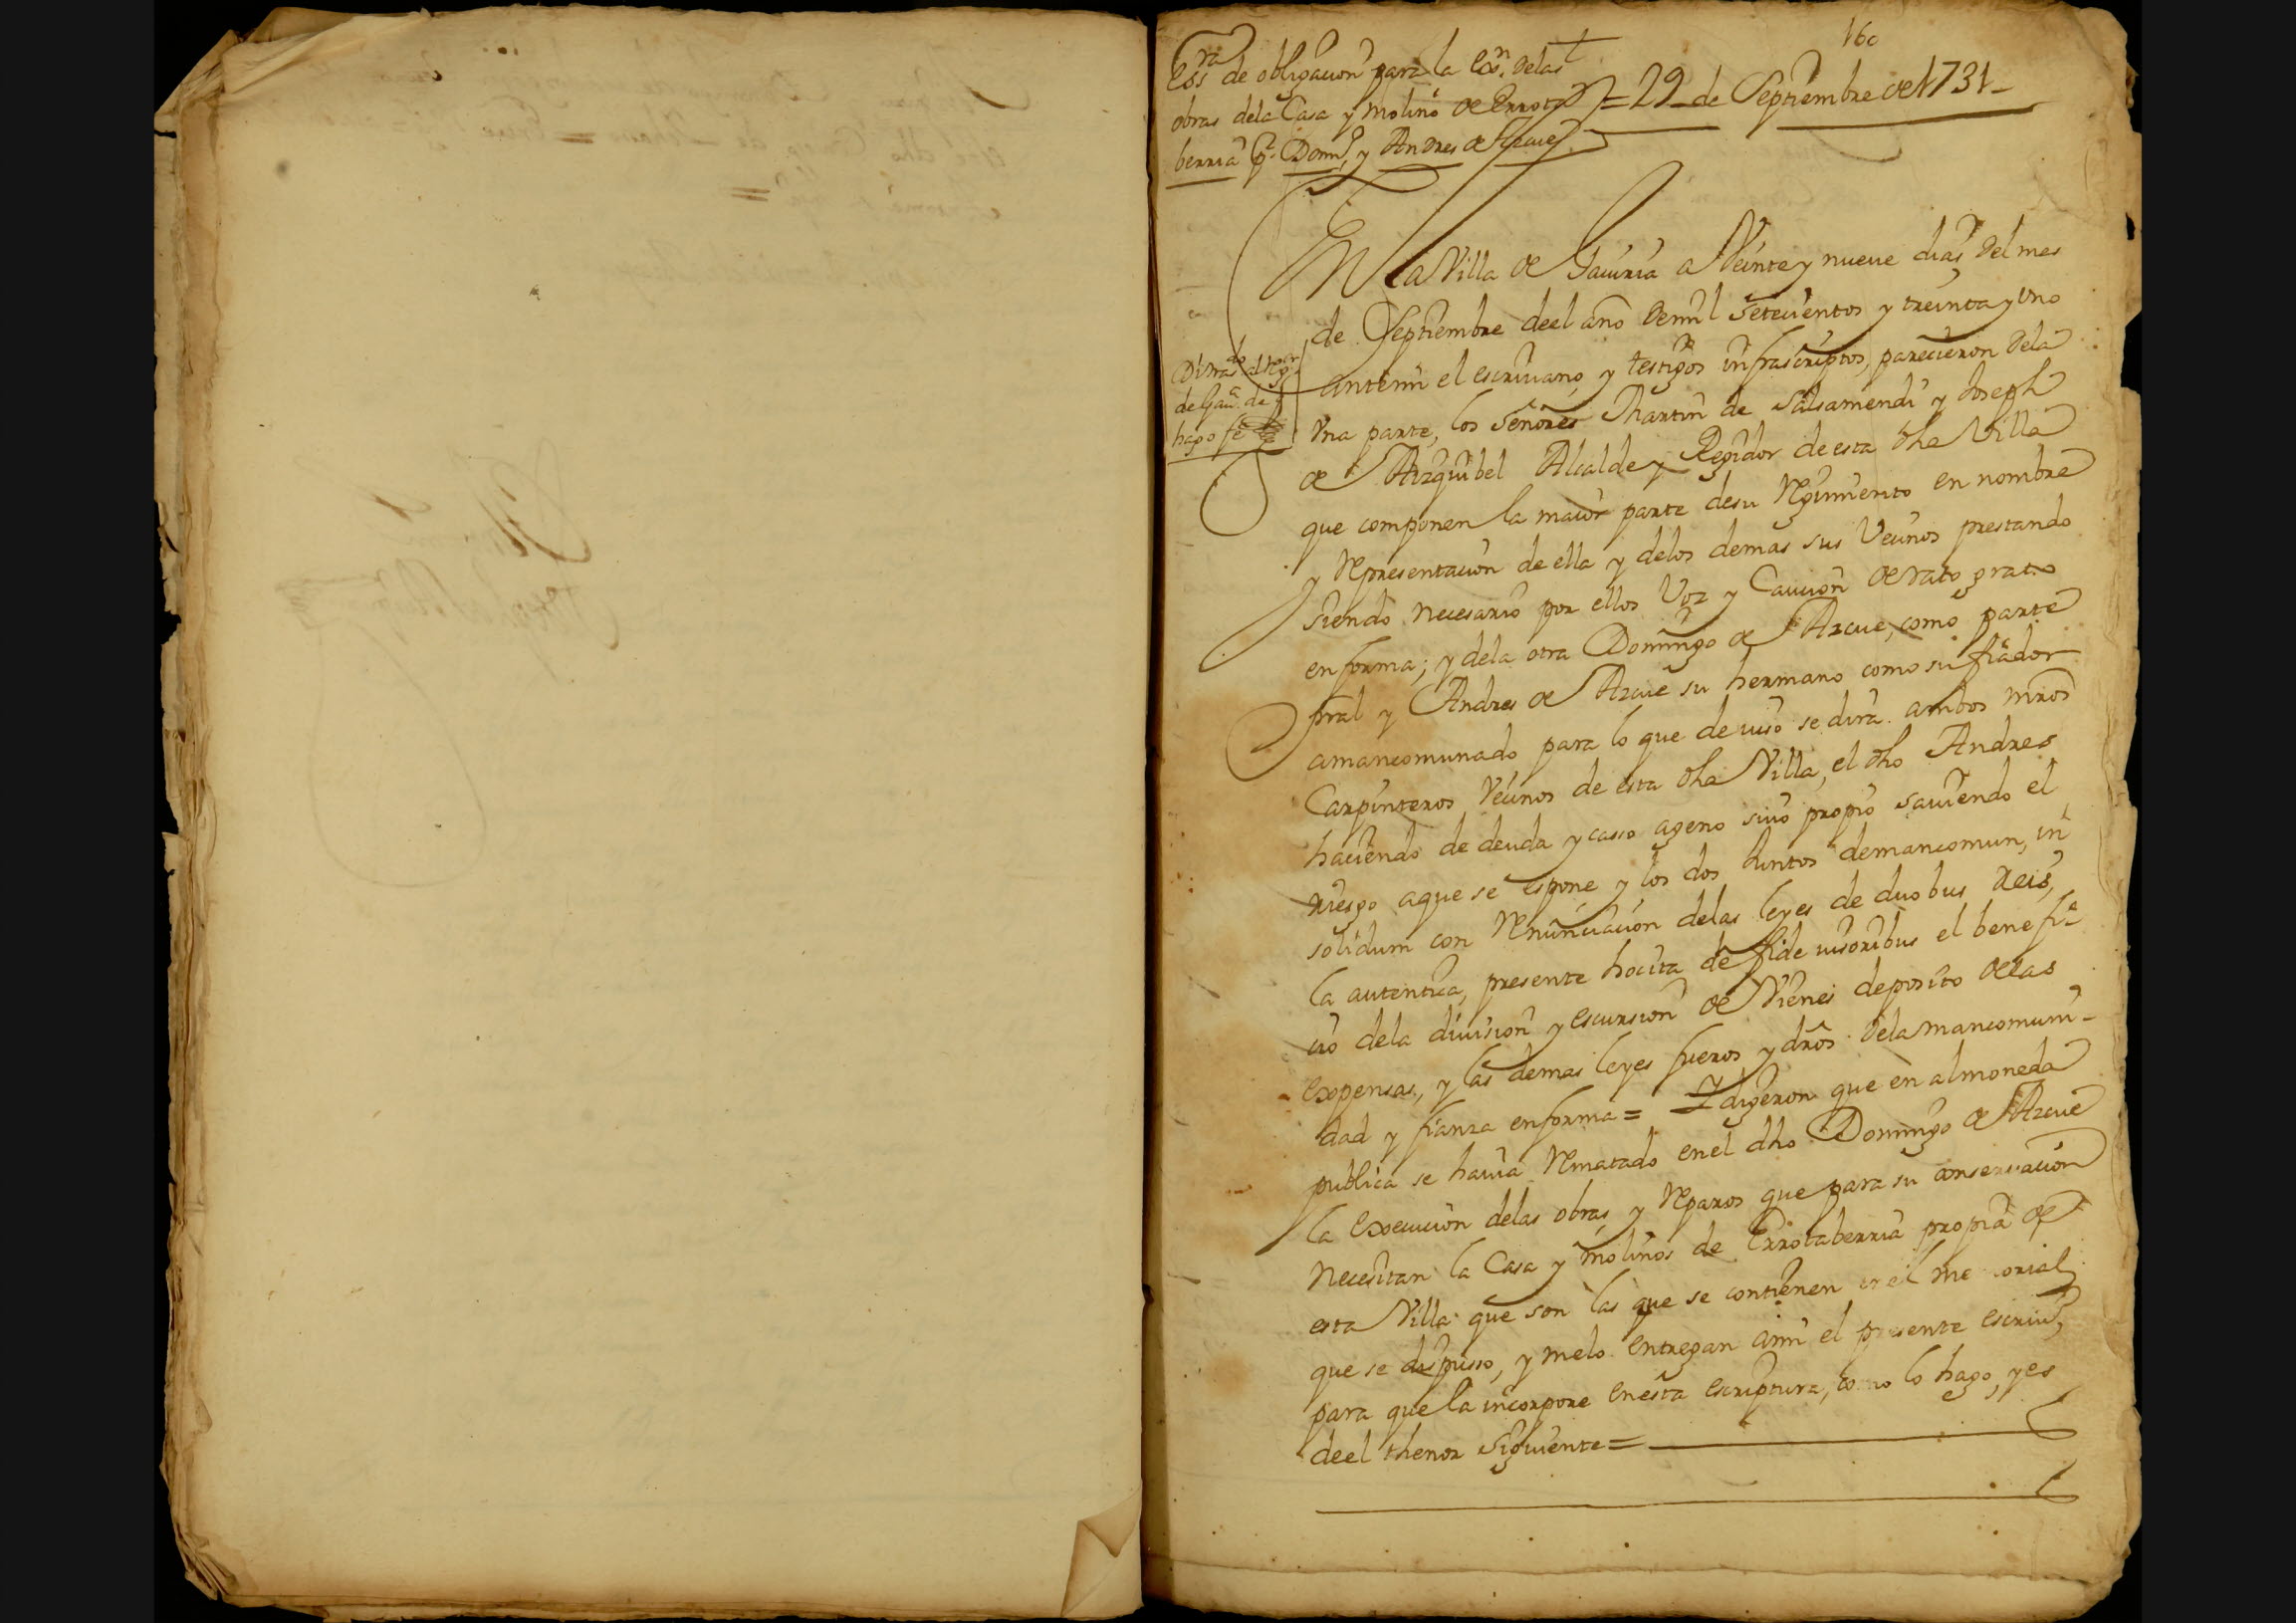 160
Essra de obligacion para la Exon. delas
obras dela Casa y Molino de Errota
berria pr. Domo. y Andres de Azcue
= 29 de Septiembre de 1731 -
En la Villa de Gaviria a Veinte y nueve dias del mes
de Septiembre deel año demil setecientos y treinta y Uno
antemi el escrivano y testigos infrascriptos, parecieron dela
Una parte, los señores Martin de Salsamendi y Joseph
de Azquibel Alcalde y Regidor de esta dha Villa
que componen la maior parte desu Regimiento en nombre
y Representacion de ella y delos demas sus Vecinos prestando
siendo necesario por ellos Voz y Caucion de rato grato
en forma; y dela otra Domingo de Azcue, como parte
pral y Andres de Azcue su hermano como su fiador
amancomunado para lo que de iuso se dirá ambos mros
Carpinteros Vecinos de esta dha Villa, el dho Andres
haciendo de deuda y casso ageno suio propio saviendo el
riesgo aque se espone, y los dos Juntos demancomun, in
solidum con Renunciacion delas leyes de duobus reis,
la autentica, presente hocita de fide iusoribus el benefi
cio dela division y escursion de Vienes deposito delas
expensas, y las demas leyes fueros y dros dela mancomuni-
dad y fianza en forma = Y digeron que en almoneda
publica se havia Rematado enel dho Domingo de Azcue
la Execucion delas obras y Reparos que para su conservacion
necesitan la Casa y Molinos de Errotaberria propia de
esta Villa que son las que se contienen en el memorial
que se dispusso, y melo entregan ami el presente escrivo
para que la incorpore enesta escriptura, como lo hago, y es
deel thenor siguiente =
do al
de Gaua. de
hago fe